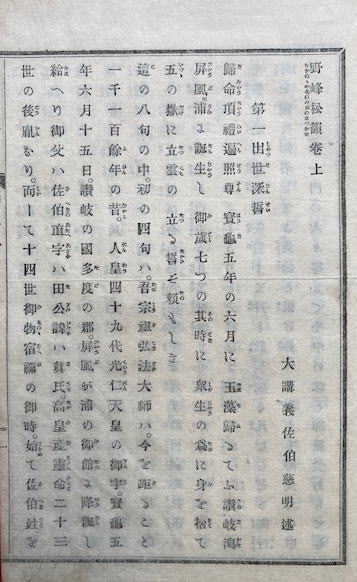 野峰松韻卷上
大講義佐伯慈明述
第一出世深誓
歸命頂禮遍照尊 寳龜五年の六月に 玉藻歸るてふ讃岐潟
屏風浦に誕生し 御歳七つの其時に 衆生の爲に身を捨て
五の嶽に立雲の 立る誓ぞ頼もしき
這の八句の中。初の四句ハ。吾宗祖弘法大師ハ。今を距ること
一千一百餘年の昔。人皇四十九代光仁天皇の御宇。寳龜五
年六月十五日。讃岐の國多度の郡。屏風が浦の御館に降誕し
給へり御父ハ佐伯直字ハ田公諱ハ眞氏。高皇産靈命二十三
世の後胤なり。而して十四世御物宿禰の御時。始て佐伯姓を